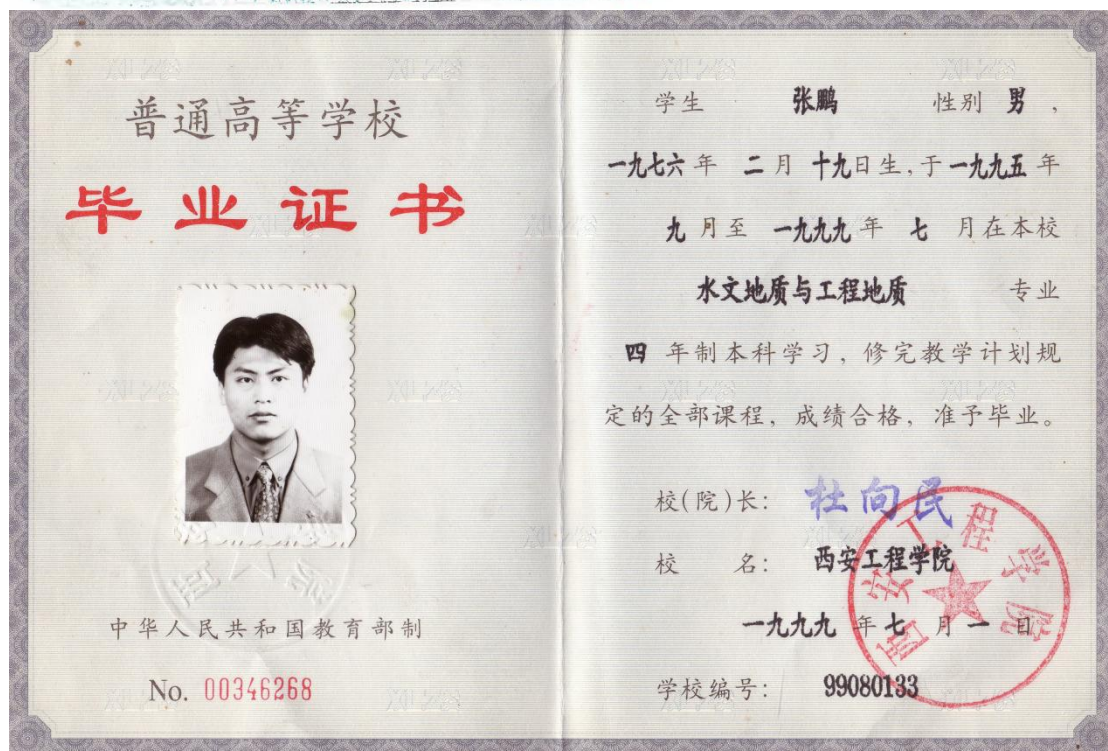 普通高等学校
毕业证书
中华人民共和国教育部制
No. 00346268
学生 张鹏 性别 男,
一九七六年 二月 十九日生,于一九九五年
九月至 一九九九年 七 月在本校
水文地质与工程地质 专业
四 年制本科学习,修完教学计划规
定的全部课程,成绩合格,准予毕业。
校(院)长: 杜向民
校 名: 西安工程学院
一九九九 年 七 月 一 日
学校编号: 99080133
西安工程学院